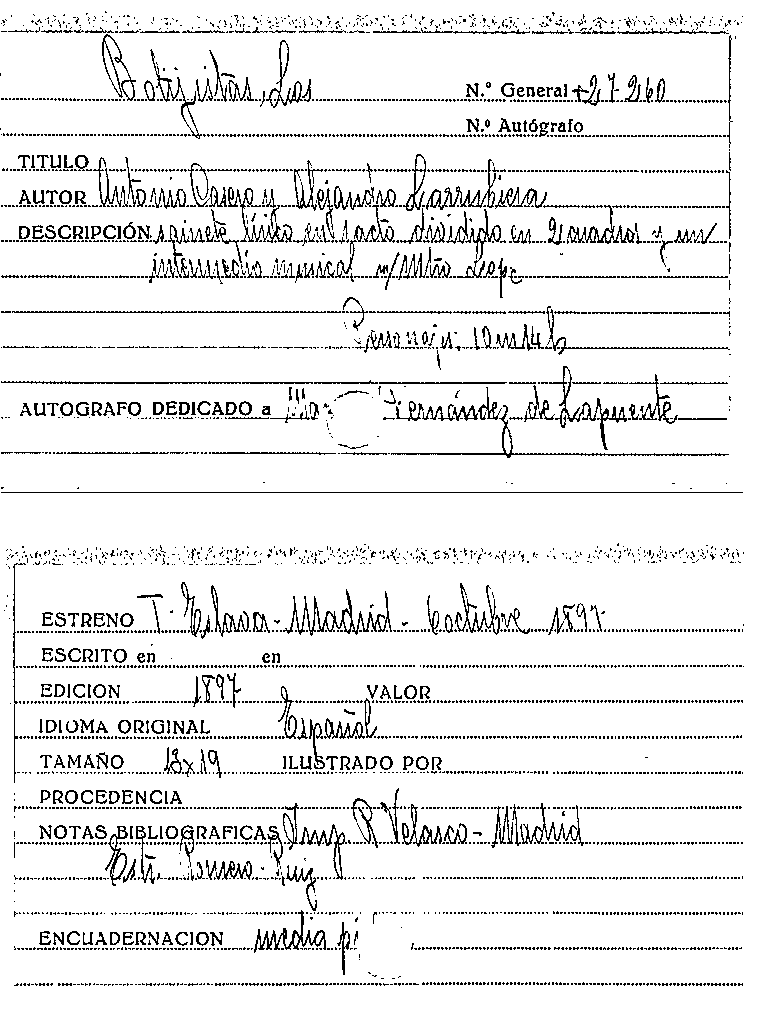 Botijistas, Las
N.º General +27260
N.º Autógrafo
TITULO
AUTOR Antonio Casero y Alejandro Larrubiera
DESCRIPCIÓN sainete lírico en 1 acto dividido en 2 cuadros y un
intermedio musical m/ Mtro Lope
Personajes: 10 m 14 h
AUTOGRAFO DEDICADO a Fernández de Lapuente
ESTRENO T. Eslava - Madrid - 6 octubre 1897
ESCRITO en en
EDICION 1897 VALOR
IDIOMA ORIGINAL Español
TAMAÑO 13x19 ILUSTRADO POR
PROCEDENCIA
NOTAS BIBLIOGRAFICAS Imp. R Velasco - Madrid
Estr. Romero - Ruiz
ENCUADERNACION media pi